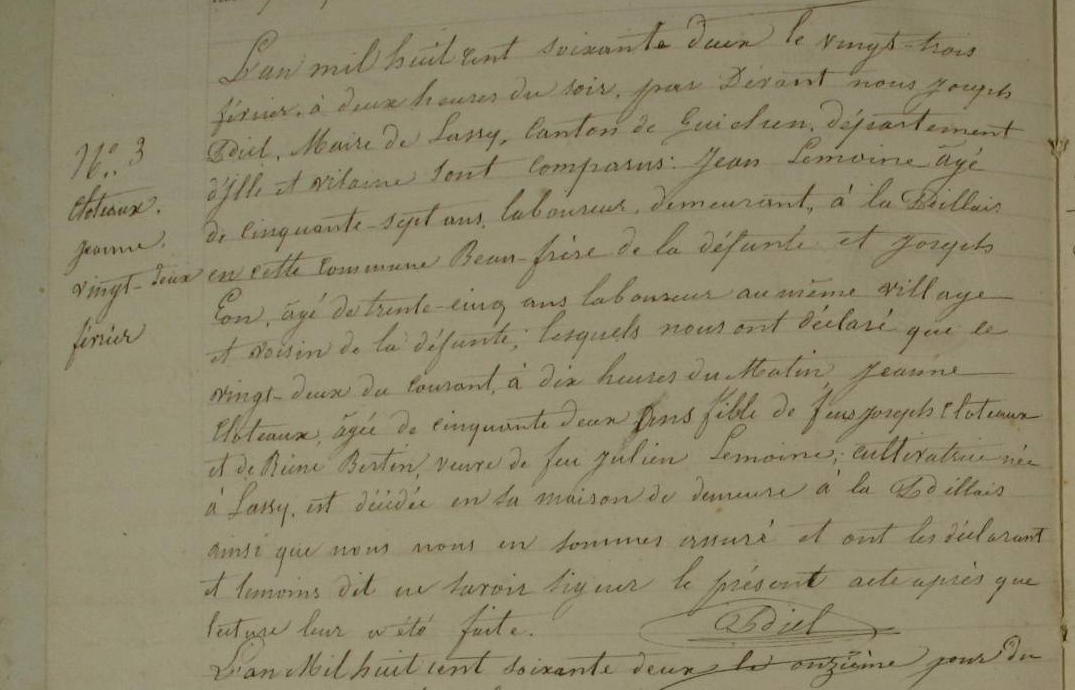 L'an mil huit cent soixante deux le vingt-trois
février, à deux heures du soir, par Dévant nous joseph
Diel, Maire de Lassy, Canton de Guichen, département
d'ylle et vilaine sont comparus: Jean Lemoine âgé
de cinquante-sept ans, laboureur, demeurant, à la Dillais
N° 3
cloteaux.
jeanne.
vingt-deux
février
en cette commune Beau-frère de la défunte et joseph
Eon, âgé de trente-cinq ans laboureur au même village
et voisin de la défunte; lesquels nous ont déclaré que le
vingt-deux du courant, à dix heures du Matin, jeanne
Cloteaux, âgée de cinquante deux Ans fille de feus joseph Cloteaux
et de Reine Bertin, veuve de feu julien Lemoine, cultivatrice née
à Lassy, est décédée en sa maison de demeure à la Dillais
ainsi que nous nous en sommes assuré et ont les déclarant
et temoins dit ne savoir signer le présent acte après que
lecture leur a été faite.
Diel
L'an Mil huit cent soixante deux le onzième jour du